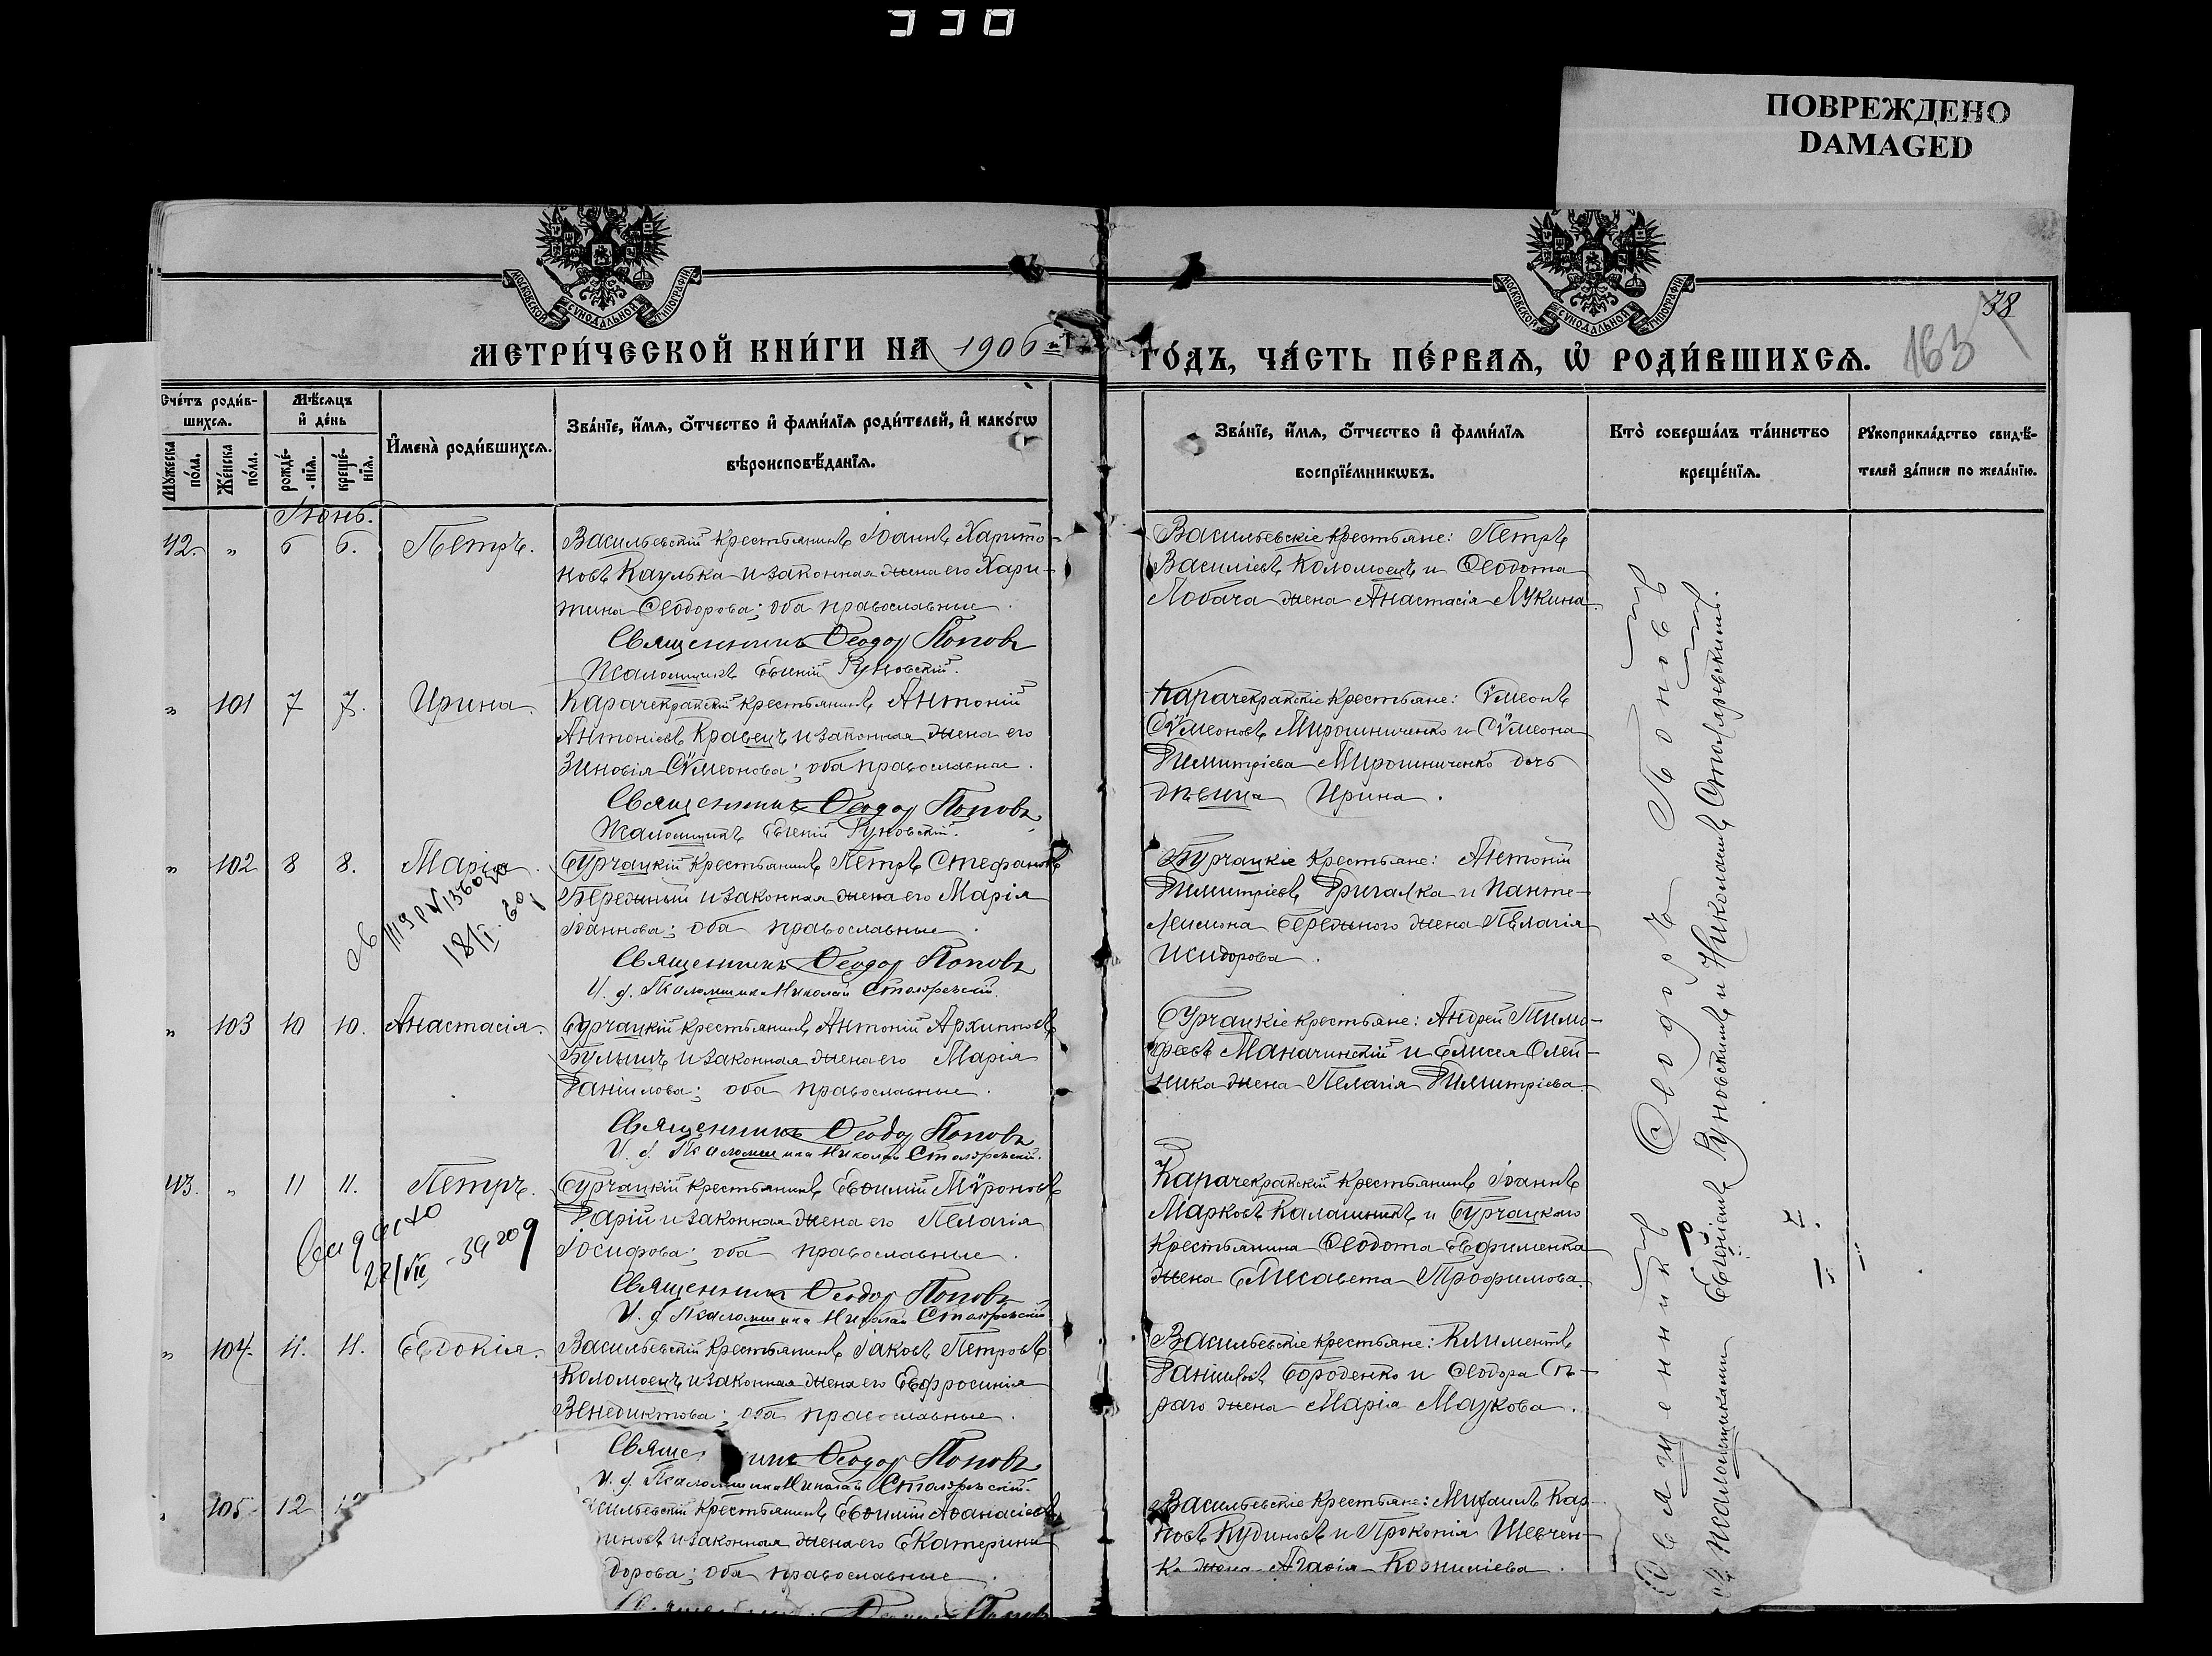 330
ПОВРЕЖДЕНО
DAMAGED
МОСКОВСКОЙ СѴНОДАЛЬНОЙ ТИПОГРАФІИ
МОСКОВСКОЙ СѴНОДАЛЬНОЙ ТИПОГРАФІИ
78
163
МЕТРИ́ЧЕСКОЙ КНИ́ГИ НА 1906й
ГО́ДЪ, ЧА́СТЬ ПЕ́РВАѦ, Ѡ҆ РОДИ́ВШИХСѦ.
Сче́тъ роди́в-
шихсѧ.
Мѣ́сѧцъ
и҆ де́нь
Мꙋ́жеска
по́ла.
Же́нска
по́ла.
рожде́-
нїѧ.
креще́-
нїѧ.
И҆мена̀ роди́вшихсѧ.
Зва́нїе, и҆́мѧ, ѻ҆́тчество и҆ фами́лїѧ роди́телей, и҆ како́гѡ
вѣроисповѣ́данїѧ.
Зва́нїе, и҆́мѧ, ѻ҆́тчество и҆ фами́лїѧ
воспрїе́мникѡвъ.
Кто̀ соверша́лъ та́инство
креще́нїѧ.
Рꙋкоприкла́дство свидѣ́-
телей за́писи по жела́нїю.
Іюнь.
42. " 6 6. Петръ.
Васильевскій крестьянинъ Іоаннъ Харито-
новъ Каулька и законная жена его Хари-
тина Ѳеодорова; оба православные.
Священникъ Ѳеодор Поповъ
Псаломщикъ Евгеній Руновскій.
Васильевскіе крестьяне: Петръ
Василіевъ Коломоецъ и Ѳеодота
Лобача жена Анастасія Лукина.
" 101 7 7. Ирина.
Карачекракскій крестьянинъ Антоній
Антоніевъ Кравецъ и законная жена его
Зиновія Сѵмеонова; оба православные.
Священникъ Ѳеодор Поповъ
Псаломщикъ Евгеній Руновскій.
Карачекракскіе крестьяне: Сѵмеонъ
Сѵмеоновъ Мирошниченко и Сѵмеона
Димитріева Мирошниченко дочь
дѣвица Ирина.
" 102 8 8. Марія.
Бурчацкій крестьянинъ Петръ Стефановъ
Бережный и законная жена его Марія
Іоаннова; оба православные.
Священникъ Ѳеодор Поповъ
И. д. Псаломщика Николай Столяревскій.
Бурчацкіе крестьяне: Антоній
Димитріевъ Григалка и Панте-
леимона Бережного жена Пелагія
Исидорова.
" 103 10 10. Анастасія.
Бурчацкій крестьянинъ Антоній Архиповъ
и законная жена его Марія
Даніилова; оба православные.
Священникъ Ѳеодор Поповъ
И. д. Псаломщика Николай Столяревскій.
Бурчацкіе крестьяне: Андрей Тимо-
феевъ Маначинскій и Елисея Олей-
ника жена Пелагія Димитріева
43. " 11 11. Петръ.
22/VII
Бурчацкій крестьянинъ Евѳимій Мѵроновъ
и законная жена его Пелагія
Іосифова; оба православные.
Священникъ Ѳеодор Поповъ
И. д. Псаломщика Николай Столяревскій
Карачекракскій крестьянинъ Іоаннъ
Марковъ Калашникъ и Бурчацкаго
крестьянина Ѳеодота Евфименка
жена Елисавета Трофимова.
" 104. 11. 11. Евдокія.
Васильевскій крестьянинъ Іаковъ Петровъ
Коломоецъ и законная жена его Евфросинія
Венедиктова; оба православные.
Ѳеодор Поповъ
И. д. Псаломщика Николай Столяревскій.
Васильевскіе крестьяне: Климентъ
Даніиловъ Бороденко и Ѳеодора Сѣ-
раго жена Марія Мазкова.
105 12 12
крестьянинъ Евѳимій Аѳанасіевъ
и законная жена его Екатерина
дорова; оба православные.
Ѳеодор Поповъ
Васильевскіе крестьяне: Михаилъ Кар-
повъ Кудиновъ и Прокопія Шевчен-
ко жена Агафія Корниліева.
Священникъ Ѳеодоръ Поповъ
съ псаломщиками Евгеніемъ Руновскимъ и Николаемъ Столяревскимъ.